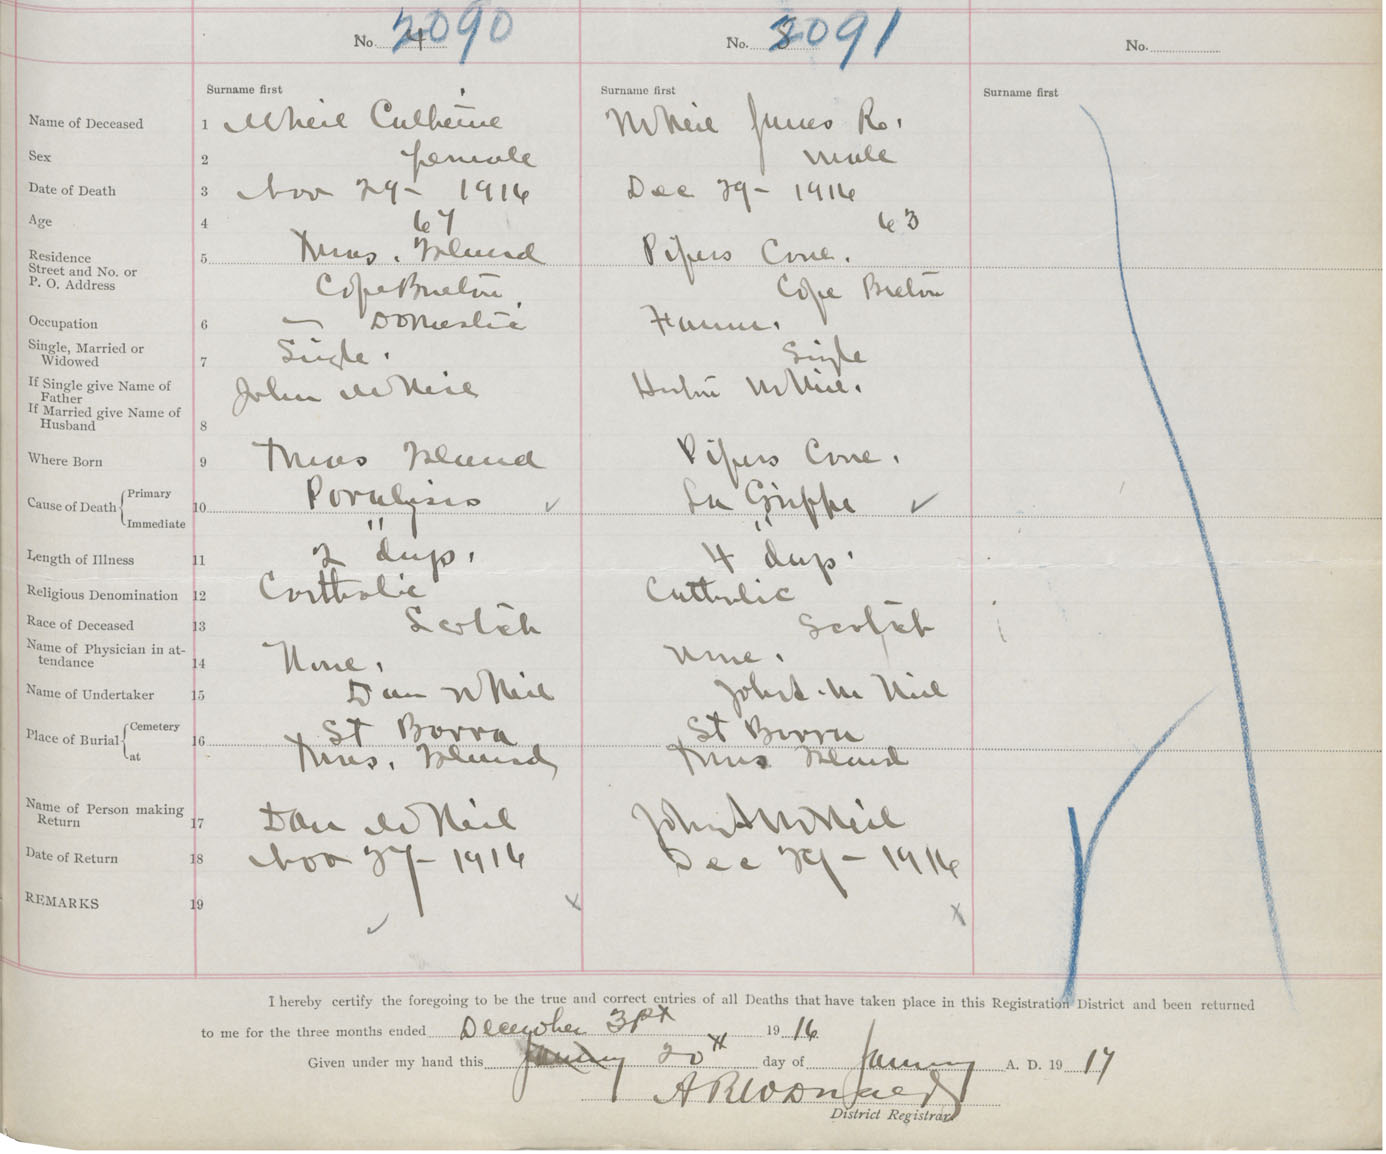 No. 4 2090
No. 5 2091
No.
Surname first
Surname first
Surname first
Name of Deceased 1 McNeil Catherine McNeil James R.
Sex 2 female male
Date of Death 3 Nov 29- 1916 Dec 29- 1916
Age 4 67 63
Residence 5 Xmas. Island Pipers Cove.
Street and No. or
P. O. Address Cape Breton. Cape Breton
Occupation 6 — Domestic Farmer.
Single, Married or
Widowed 7 Single. Single
If Single give Name of
Father John McNeil Hector McNeil.
If Married give Name of
Husband 8
Where Born 9 Xmas Island Pipers Cove.
Cause of Death { Primary
10 Paralysis ✓ La Grippe ✓
Immediate " "
Length of Illness 11 2 days. 4 days.
Religious Denomination 12 Catholic Catholic
Race of Deceased 13 Scotch Scotch
Name of Physician in at-
tendance 14 None. None.
Name of Undertaker 15 Dan McNeil John A. McNeil
Place of Burial { Cemetery
16 St Barra St Barra
at Xmas. Island Xmas Island
Name of Person making
Return 17 Dan McNeil John A McNeil
Date of Return 18 Nov 27- 1916 Dec 29- 1916
REMARKS 19 x x
I hereby certify the foregoing to be the true and correct entries of all Deaths that have taken place in this Registration District and been returned
to me for the three months ended December 31st 1916
Given under my hand this January 20th day of January A. D. 1917
District Registrar